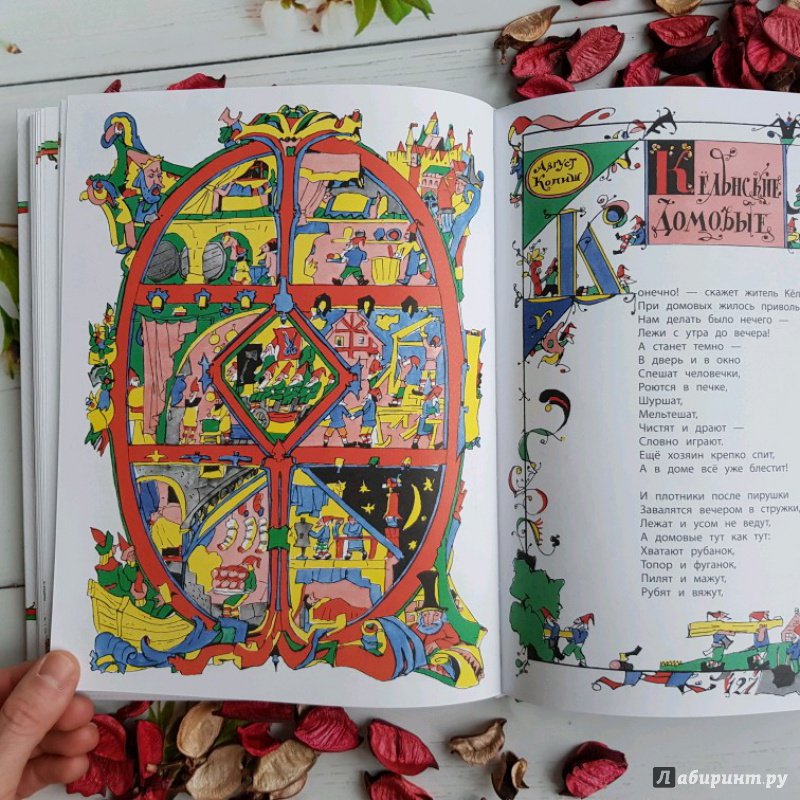 Август
Копиш
Кёльнские
домовые
Конечно! — скажет житель Кёл
При домовых жилось приволь
Нам делать было нечего —
Лежи с утра до вечера!
А станет темно —
В дверь и в окно
Спешат человечки,
Роются в печке,
Шуршат,
Мельтешат,
Чистят и драют —
Словно играют.
Ещё хозяин крепко спит,
А в доме всё уже блестит!
И плотники после пирушки
Завалятся вечером в стружки,
Лежат и усом не ведут,
А домовые тут как тут:
Хватают рубанок,
Топор и фуганок,
Пилят и мажут,
Рубят и вяжут,
127
Лабиринт.ру